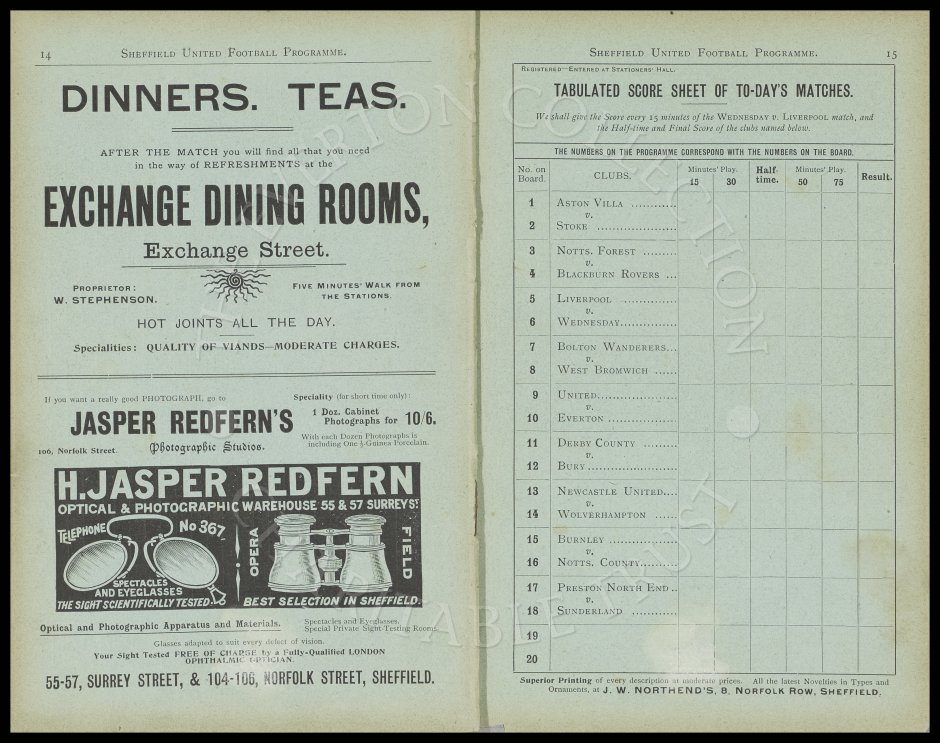 14 SHEFFIELD UNITED FOOTBALL PROGRAMME.
DINNERS. TEAS.
AFTER THE MATCH you will find all that you need
in the way of REFRESHMENTS at the
EXCHANGE DINING ROOMS,
Exchange Street.
PROPRIETOR:
W. STEPHENSON.
FIVE MINUTES' WALK FROM
THE STATIONS.
HOT JOINTS ALL THE DAY.
Specialities: QUALITY OF VIANDS—MODERATE CHARGES.
If you want a really good PHOTOGRAPH, go to
JASPER REDFERN'S
106, Norfolk Street. Photographic Studios.
Speciality (for short time only):
1 Doz. Cabinet
Photographs for 10/6.
With each Dozen Photographs is
including One ½-Guinea Porcelain.
H. JASPER REDFERN
OPTICAL & PHOTOGRAPHIC WAREHOUSE 55 & 57 SURREY ST
TELEPHONE No 367.
SPECTACLES
AND EYEGLASSES
THE SIGHT SCIENTIFICALLY TESTED.
OPERA
FIELD
BEST SELECTION IN SHEFFIELD.
Optical and Photographic Apparatus and Materials.
Spectacles and Eyeglasses.
Special Private Sight-Testing Room.
Glasses adapted to suit every defect of vision.
Your Sight Tested FREE OF CHARGE by a Fully-Qualified LONDON
OPHTHALMIC OPTICIAN.
55-57, SURREY STREET, & 104-106, NORFOLK STREET, SHEFFIELD.
SHEFFIELD UNITED FOOTBALL PROGRAMME. 15
REGISTERED—ENTERED AT STATIONERS' HALL.
TABULATED SCORE SHEET OF TO-DAY'S MATCHES.
We shall give the Score every 15 minutes of the WEDNESDAY v. LIVERPOOL match, and
the Half-time and Final Score of the clubs named below.
THE NUMBERS ON THE PROGRAMME CORRESPOND WITH THE NUMBERS ON THE BOARD.
No. on Board. CLUBS. Minutes' Play. 15 30 Half-time. Minutes' Play. 50 75 Result.
1 ASTON VILLA ............
v.
2 STOKE .....................
3 NOTTS. FOREST .........
v.
4 BLACKBURN ROVERS ...
5 LIVERPOOL ...............
v.
6 WEDNESDAY...............
7 BOLTON WANDERERS...
v.
8 WEST BROMWICH ......
9 UNITED.....................
v.
10 EVERTON ..................
11 DERBY COUNTY .........
v.
12 BURY........................
13 NEWCASTLE UNITED....
v.
14 WOLVERHAMPTON ......
15 BURNLEY ..................
v.
16 NOTTS. COUNTY..........
17 PRESTON NORTH END..
v.
18 SUNDERLAND ............
19
20
Superior Printing of every description at moderate prices. All the latest Novelties in Types and
Ornaments, at J. W. NORTHEND'S, 8, NORFOLK ROW, SHEFFIELD.